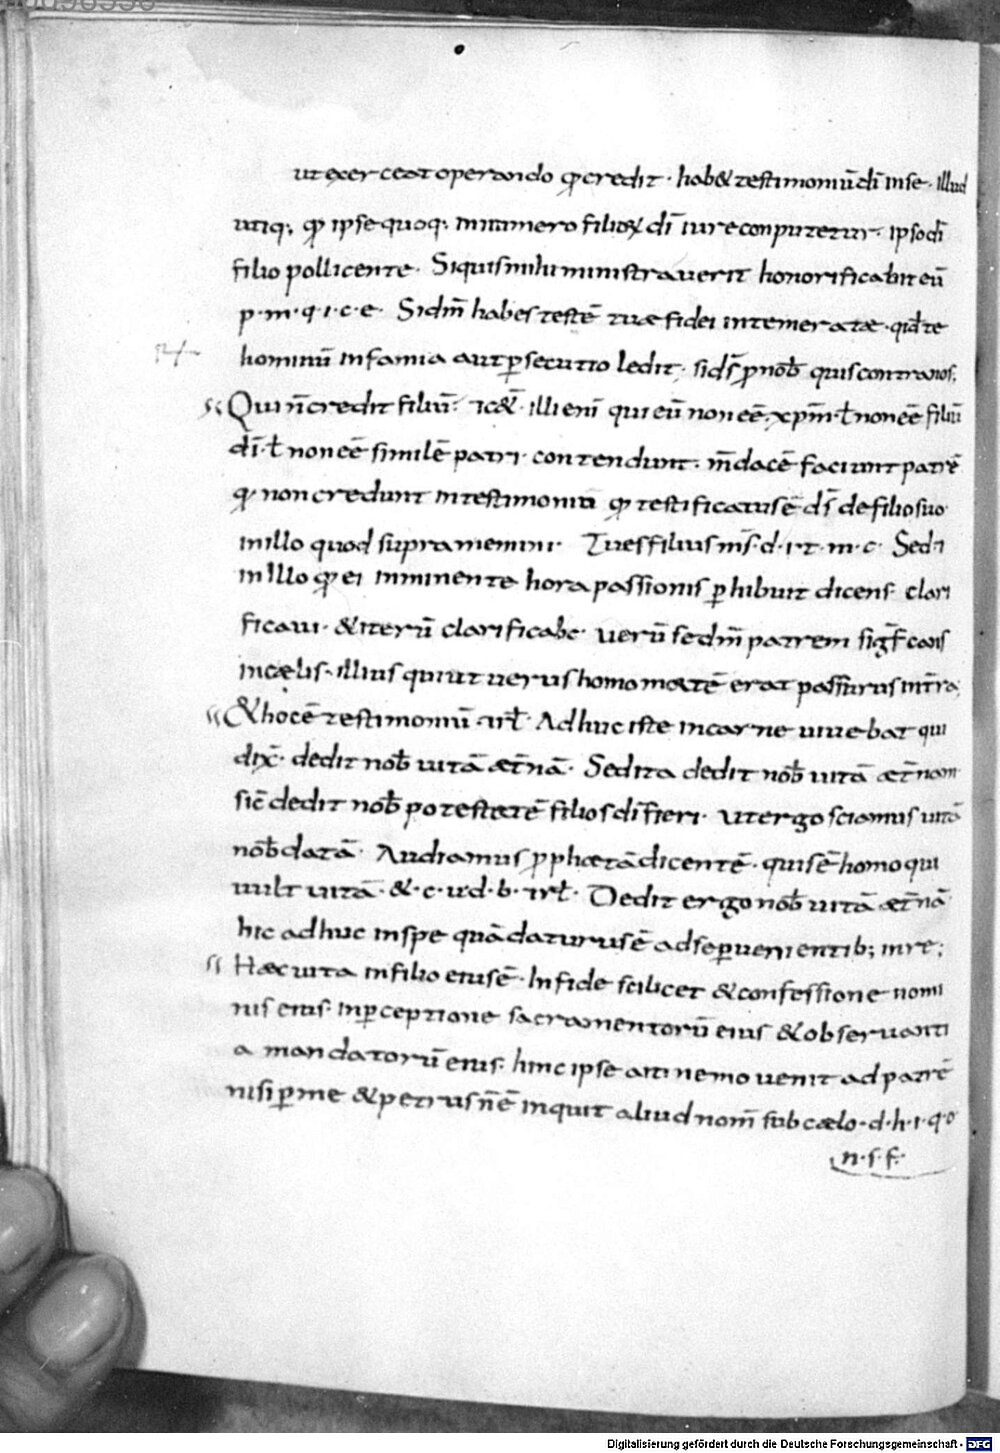 ut exerceat operando qđ credit· hab& testimoniū dī in se· Illud
utiq; qđ ipse quoq; in numero filioꝝ dī iure computetur· ipso dī
filio pollicente· Siquis mihi ministraverit honorificabit eū
p·m·q·i·c·e· Si dm̄ habes testē tuæ fidei intemeratæ· quid te
hominū infamia aut ꝑsecutio ledit· si ds̄ ꝓ nob̄ quis contra nos;
Qui n̄ credit filiū· &c̄ illi enī qui eū non eē xpm̄ ł non eē filiū
dī· ł non eē similē patri· contendunt· mendacē faciunt patrē
qđ non credunt in testimoniū qđ testificatus ē ds̄ de filio suo
in illo quod supra memini· Tu es filius ms̄·d·i·t·m·c· Sed &
in Illo qđ ei imminente hora passionis ꝑhibuit dicens· clari
ficavi· & iterū clarificabo· verū sedm̄ patrem significans
in cælis· illius qui ut verus homo in carnē erat passurus in tr̄a;
& hoc ē testimoniū· Ad huc iste in carne vivebat qui
dix̄· dedit nob̄ vitā æt̄nā· Sed ita dedit nob̄ vitā æt̄nam
sic̄ dedit nob̄ potestatē filios dī fieri· ut ergo sciamus vitā
nob̄ datā· Audiamus ꝓphetā dicentē· quis ē homo qui
vult vitā·&·c·v·d·b· Dedit ergo nob̄ vitā æt̄nā
hic adhuc in spe quā daturus ē ad se ꝑvenientib; in re;
Hæc vita in filio eius ē· In fide scilicet & confessione nomi
nis eius· In ꝑceptione sacramentorū eius & observanti
a mandatorū eius· hinc ipse ait nemo venit ad patrē
nisi ꝑ me & petrus n̄ ē inquit aliud nom̄ sub cælo·d·h·i·q·o
n·s·f·
Digitalisierung gefördert durch die Deutsche Forschungsgemeinschaft - DFG